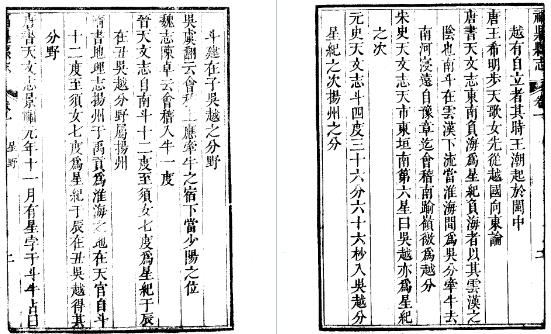 斗建在子吳越之分野
吳虞翻云會稽上應牽牛之宿下當少陽之位
魏志陳卓云會稽入牛一度
晉天文志自南斗十二度至須女七度為星紀于辰
在丑吳越分野屬揚州
隋書地理志揚州于禹貢為淮海之地在天官自斗
十二度至須女七度為星紀于辰在丑吳越得其
分野
唐書天文志景福元年十一月有星孛于斗牛占曰
星野
縣志
越有自立者其時王潮起於閩中
唐王希明步天歌女先從越國向東論
唐書天文志東南負海為星紀負海者以其雲漢之
陰也南斗在雲漢下流當淮海間為吳分牽牛去
南河浸遠自豫章迄會稽南踰嶺徼為越分
宋史天文志天市東垣南第六星曰吳越亦為星紀
之次
元史天文志斗四度三十六分六十六秒入吳越分
星紀之次揚州之分